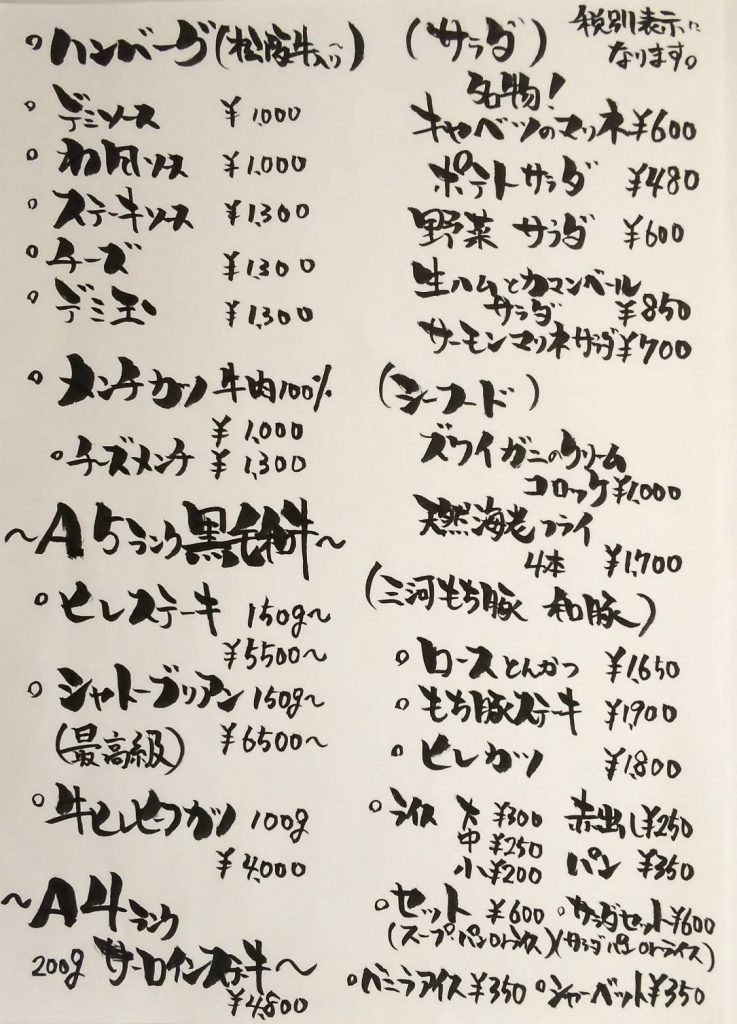 。ハンバーグ(松阪牛入り)
。デミソース ¥1,000
。和風ソース ¥1,000
。ステーキソース ¥1,300
。チーズ ¥1,300
。デミ玉 ¥1,300
。メンチカツ 牛肉100%
¥1,000
。チーズメンチ ¥1,300
〜A5ランク黒毛和牛〜
。ヒレステーキ 150g〜
¥5500〜
。シャトーブリアン 150g〜
(最高級) ¥6500〜
。牛ヒレビーフカツ 100g
¥4,000
〜A4ランク
200g サーロインステーキ〜
¥4,800
税別表示に
なります。
(サラダ)
名物!
キャベツのマリネ¥600
ポテトサラダ ¥480
野菜サラダ ¥600
生ハムとカマンベール
サラダ ¥850
サーモンマリネサラダ¥700
(シーフード)
ズワイガニのクリーム
コロッケ¥1,000
天然海老フライ
4本 ¥1,700
(三河もち豚 和豚)
。ロースとんかつ ¥1,650
。もち豚ステーキ ¥1,900
。ヒレカツ ¥1,800
。ライス 大 ¥300 赤出し¥250
中 ¥250
小¥200 パン ¥350
。セット ¥600 。サラダセット¥600
(スープ・パンorライス)(サラダ パンorライス)
。バニラアイス¥350 。シャーベット¥350